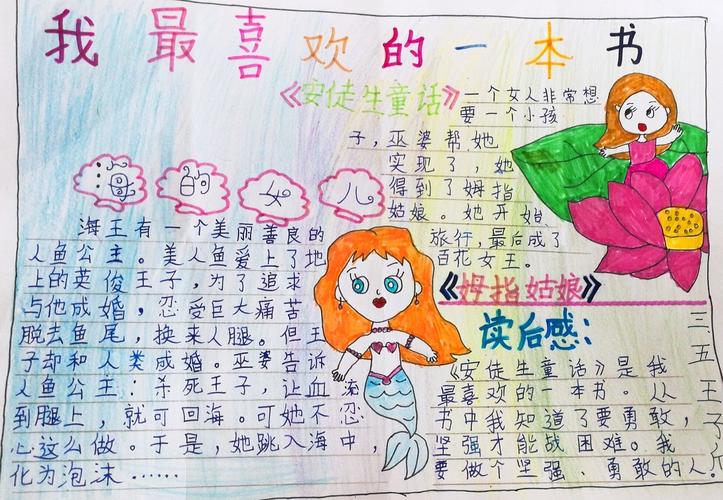 我最喜欢的一本书
《安徒生童话》
一个女人非常想
要一个小孩
子，巫婆帮她
实现了，她
得到了姆指
姑娘。她开始
旅行，最后成了
百花女王。
《姆指姑娘》
海的女儿
海王有一个美丽善良的
人鱼公主。美人鱼爱上了地
上的英俊王子，为了追求
与他成婚，忍受巨大痛苦
脱去鱼尾，换来人腿。但王
子却和人类成婚。巫婆告诉
人鱼公主：杀死王子，让血流
到腿上，就可回海。可她不忍
心这么做。于是，她跳入海中，
化为泡沫……
读后感：
《安徒生童话》是我
最喜欢的一本书。从
书中我知道了要勇敢，
坚强才能战困难。我
要做个坚强、勇敢的人！
三、五
王